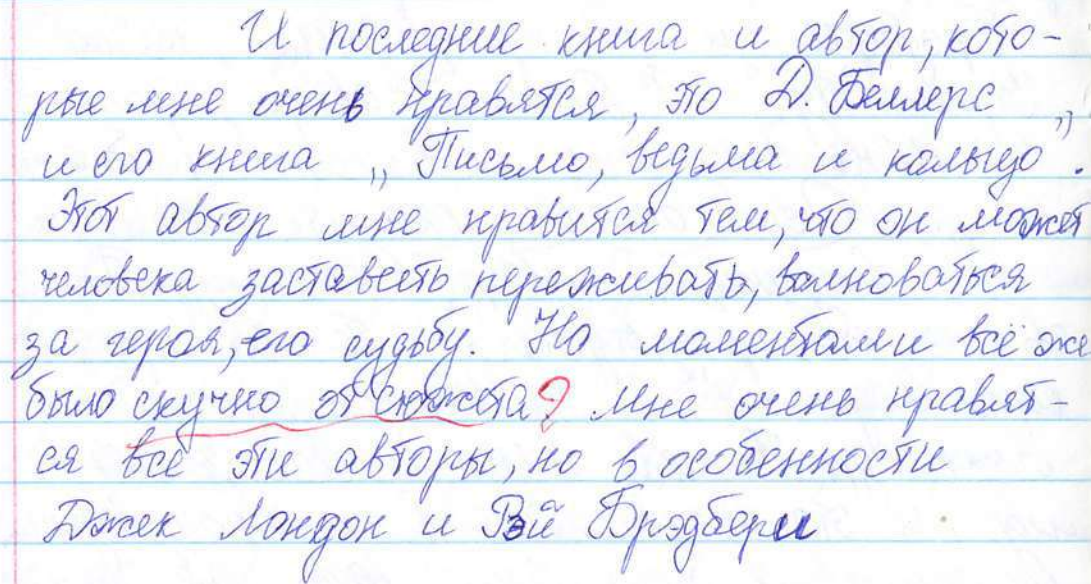 И последние книга и автор, кото-
рые мне очень нравятся, это Д. Беллерс
и его книга „Письмо, ведьма и кольцо”.
Этот автор мне нравится тем, что он может
человека заставить переживать, волноваться
за героя, его судьбу. Но моментами всё же
было скучно от сюжета? Мне очень нравят-
ся все эти авторы, но в особенности
Джек Лондон и Рэй Брэдбери